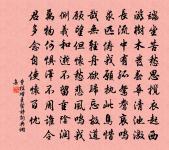 端坐苦愁思攬衣起西
遊樹木發春華清池激
長流中有孤鴛鴦哀鳴
求匹儔我願執此鳥惜
哉無輕舟欲歸忘故道
顧望但懷愁悲風鳴我
側羲和逝不留重陰潤
萬物何懼澤不周誰令
君多念自使懷百憂